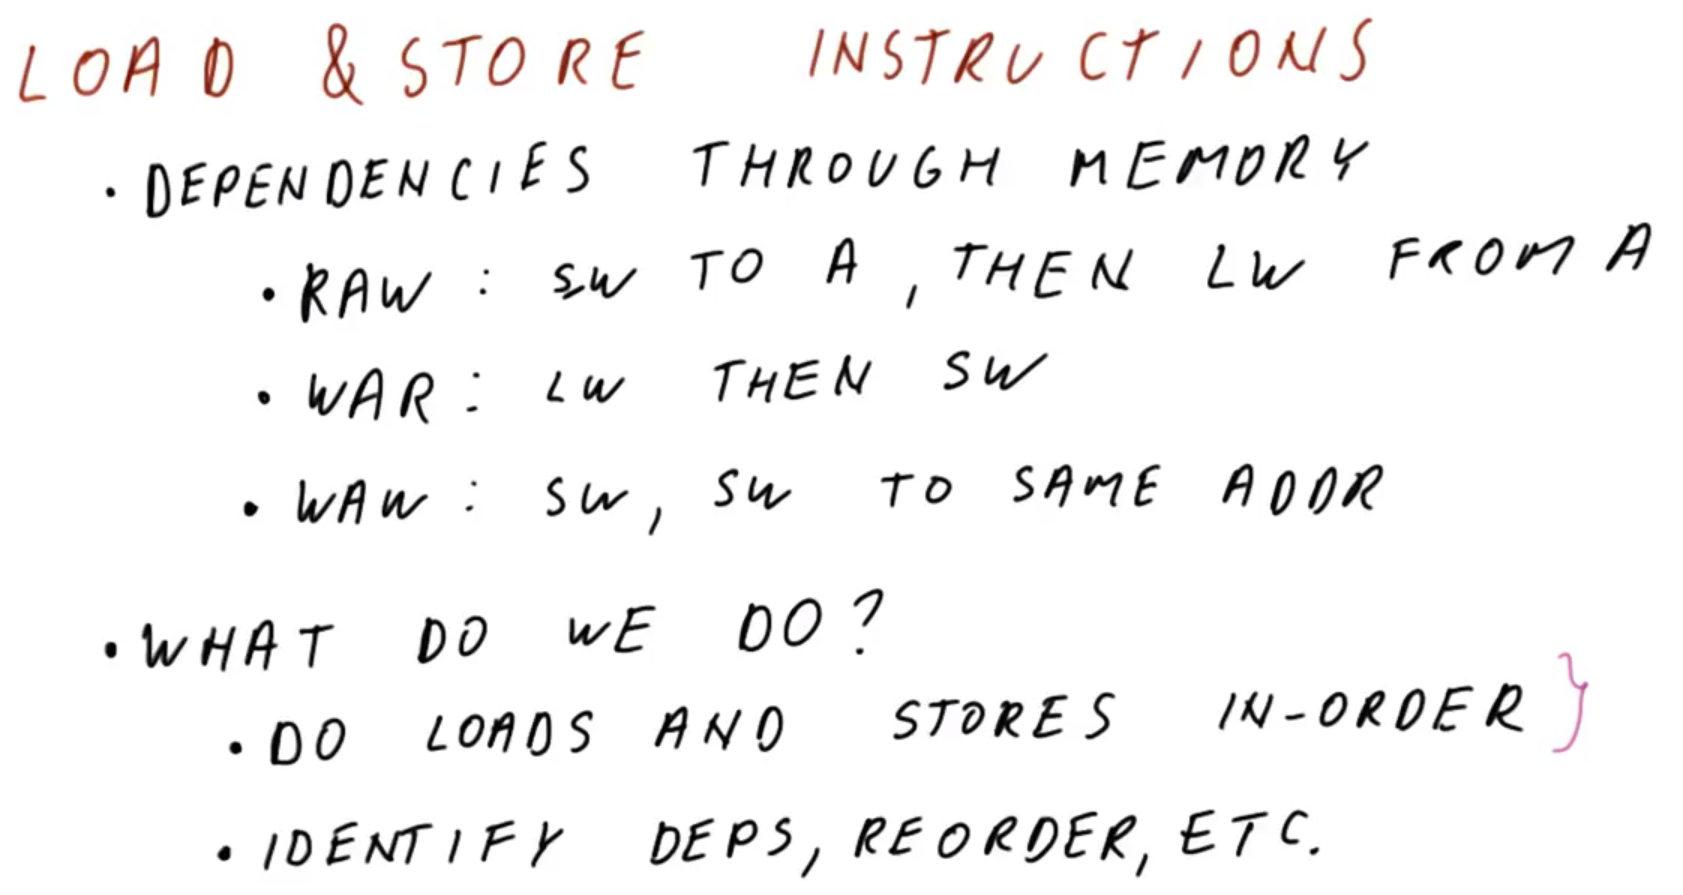 LOAD & STORE INSTRUCTIONS
• DEPENDENCIES THROUGH MEMORY
• RAW : SW TO A , THEN LW FROM A
• WAR : LW THEN SW
• WAW : SW , SW TO SAME ADDR
• WHAT DO WE DO ?
• DO LOADS AND STORES IN-ORDER }
• IDENTIFY DEPS, REORDER, ETC.